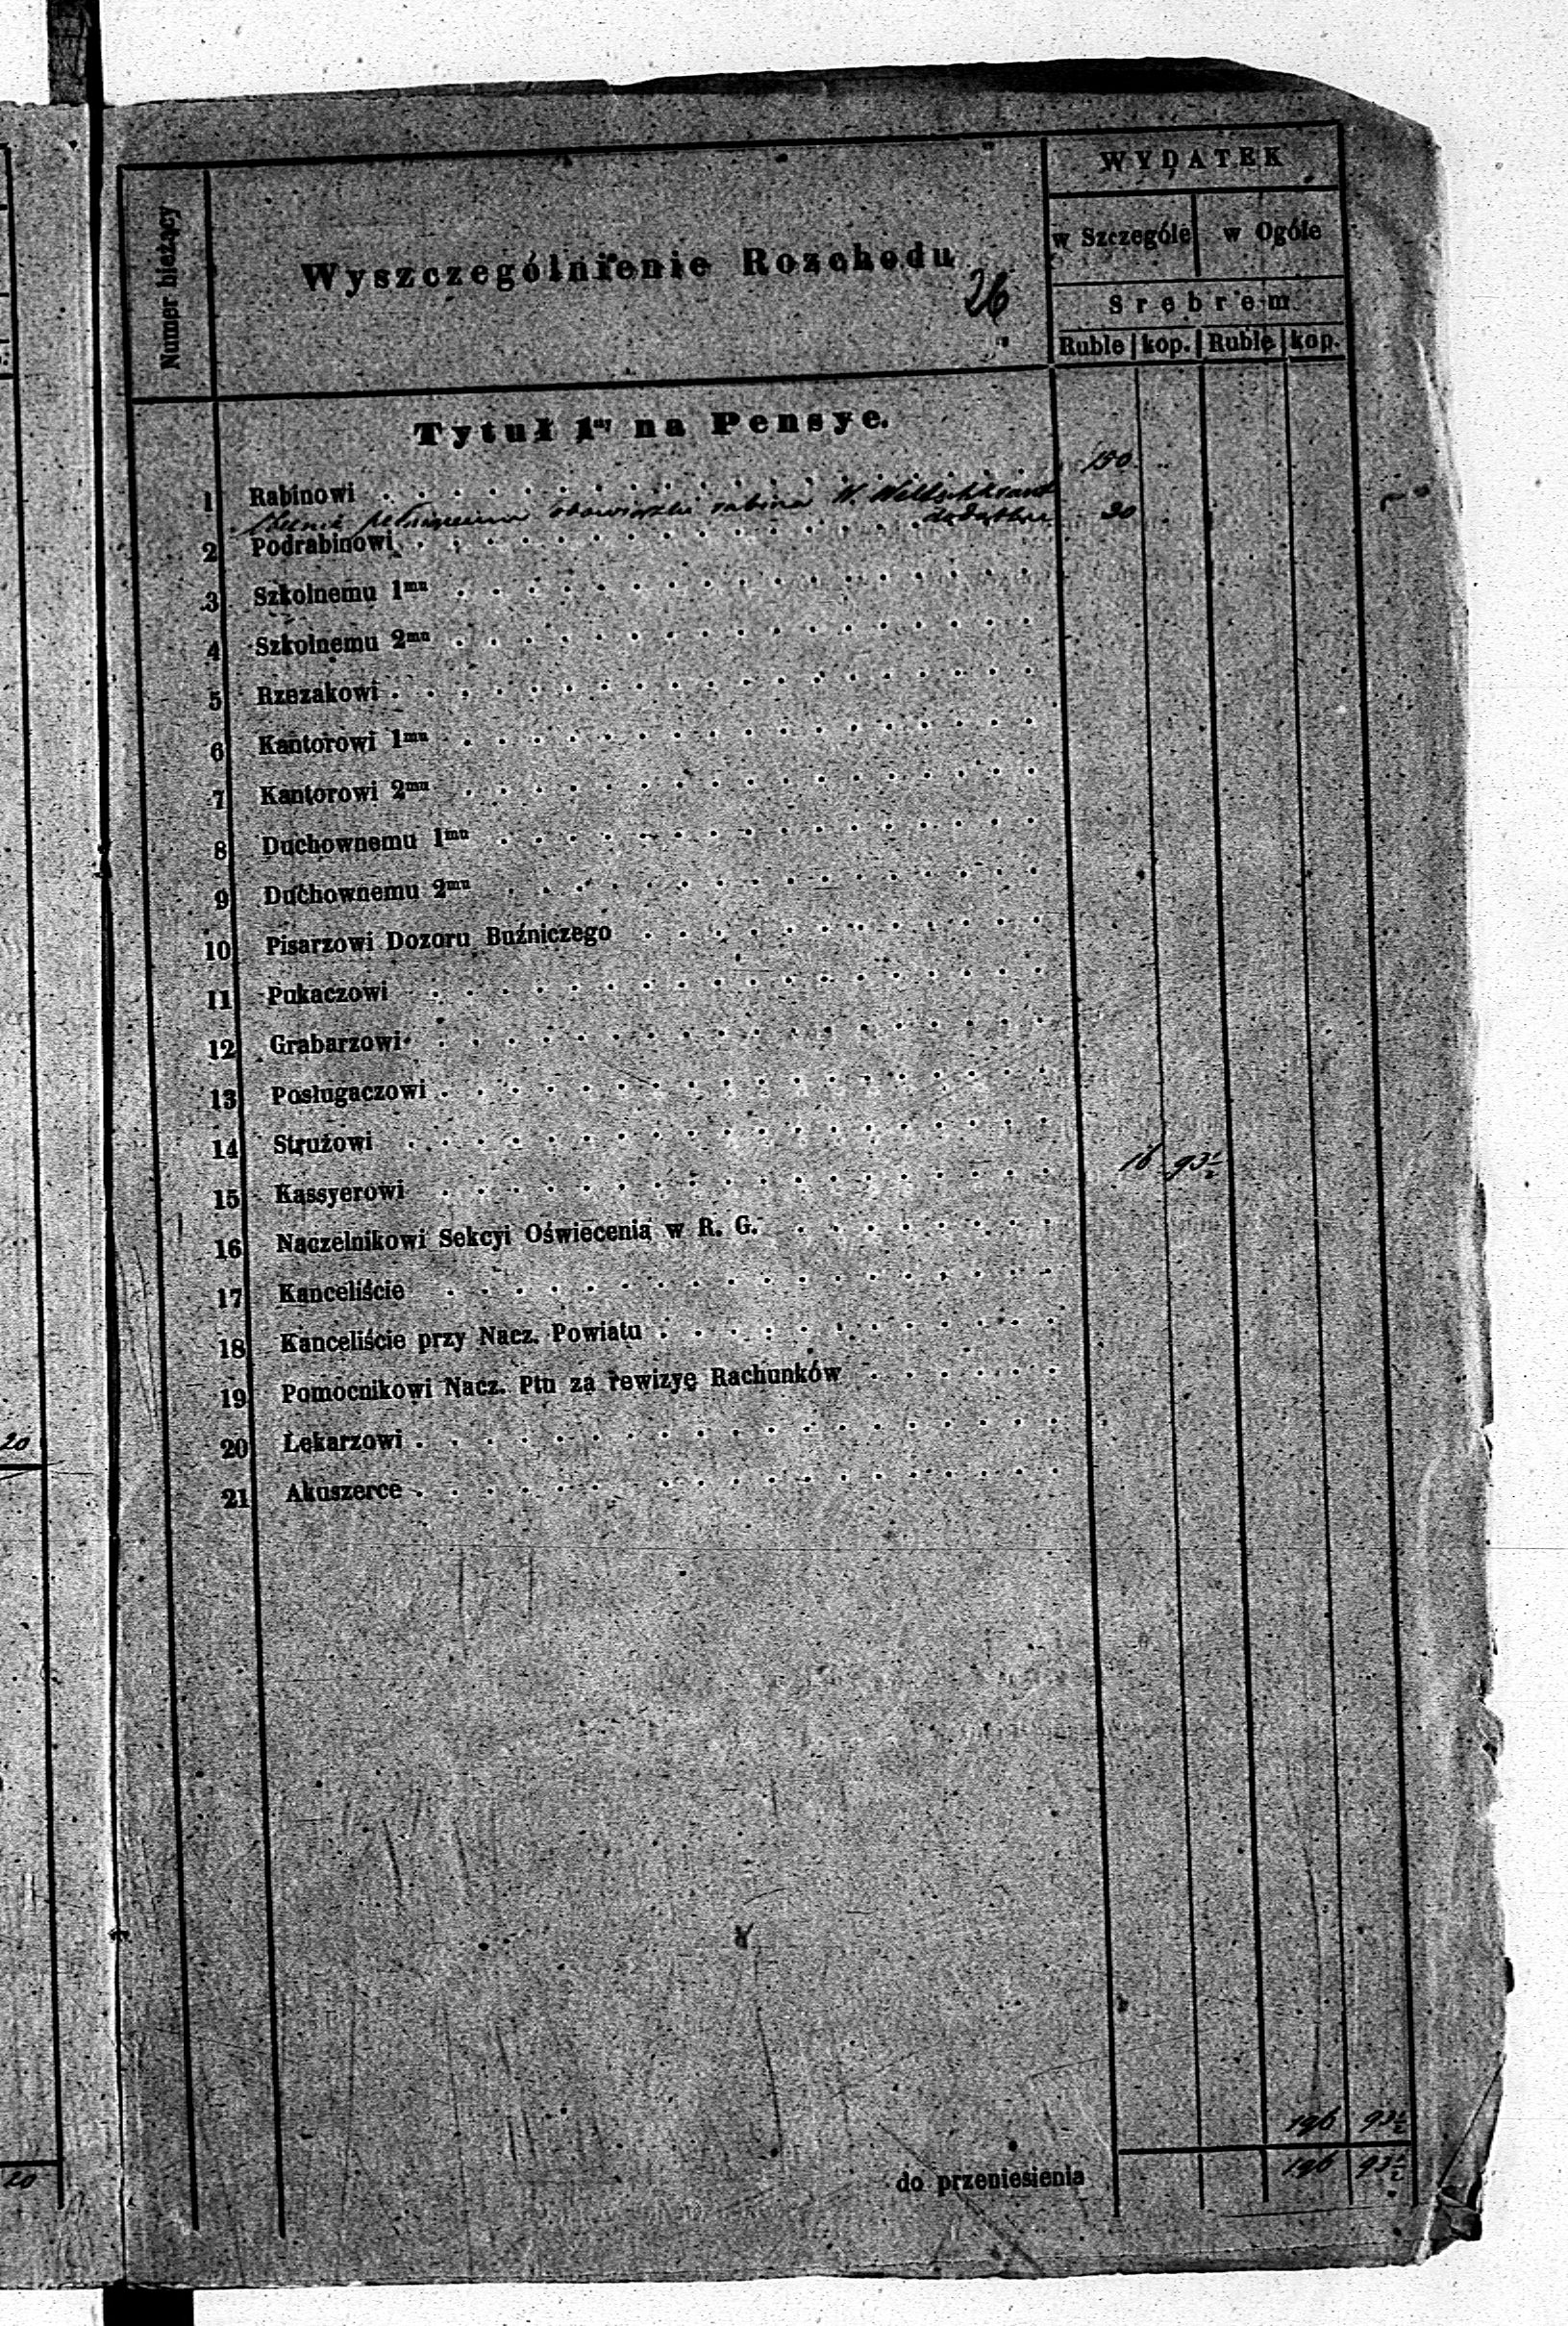 Numer bieżący
Wyszczególnienie Rozchodu
26
WYDATEK
w Szczególe w Ogóle
Srebrem
Ruble kop. Ruble kop.
Tytuł 1ny na Pensye.
1 Rabinowi 150
pełniącemu obowiązki rabina
dodatku 30
2 Podrabinowi
3 Szkolnemu 1mu
4 Szkolnemu 2mu
5 Rzezakowi
6 Kantorowi 1mu
7 Kantorowi 2mu
8 Duchownemu 1mu
9 Duchownemu 2mu
10 Pisarzowi Dozoru Buźniczego
11 Pukaczowi
12 Grabarzowi
13 Posługaczowi
14 Strużowi
15 Kassyerowi 16 93 1/2
16 Naczelnikowi Sekcyi Oświecenia w R. G.
17 Kanceliście
18 Kanceliście przy Nacz. Powiatu
19 Pomocnikowi Nacz. Ptu za rewizyę Rachunków
20 Lekarzowi
21 Akuszerce
196 93 1/2
do przeniesienia 196 93 1/2
20
20